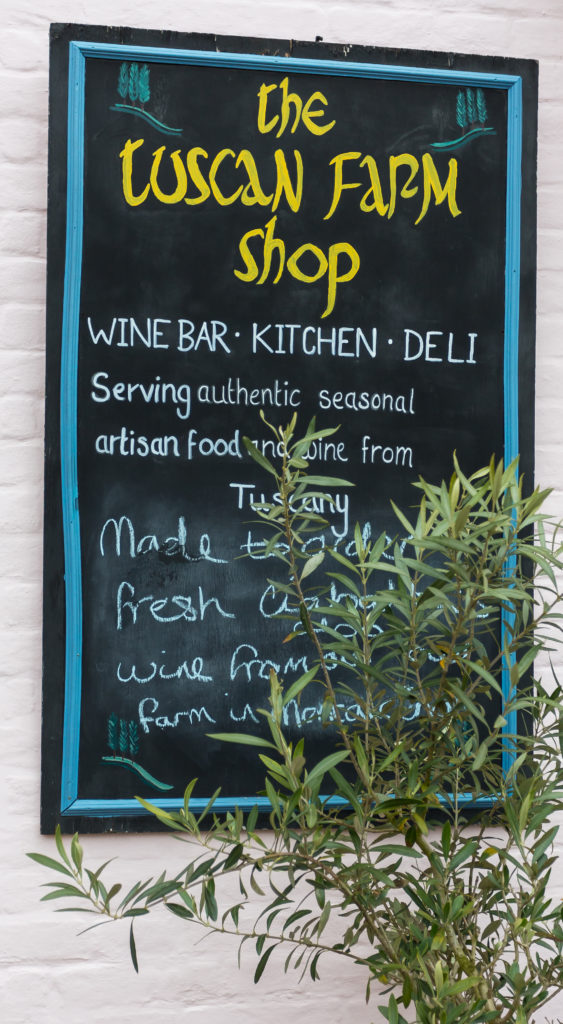 the
TUSCAN FARM
shop
WINE BAR · KITCHEN · DELI
Serving authentic seasonal
artisan food and wine from
Tuscany
Made to order
fresh
wine from
farm in